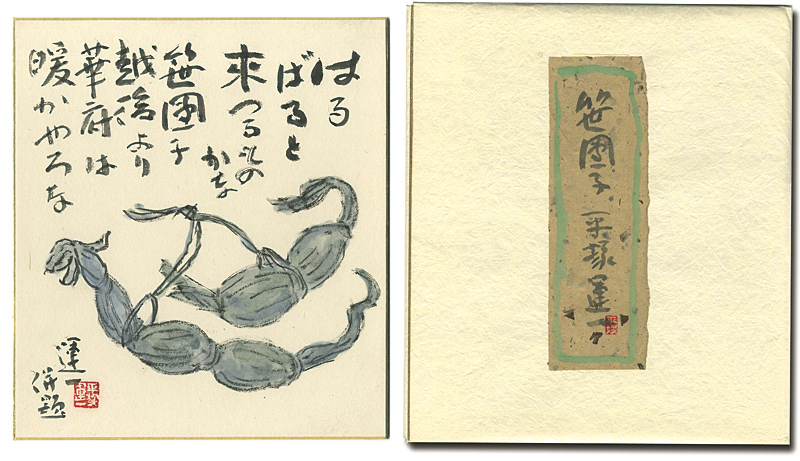 はる
ばると
来つるもの
かな
笹團子
越後より
華府は
暖かやろな
運一
併題
笹團子 平塚運一